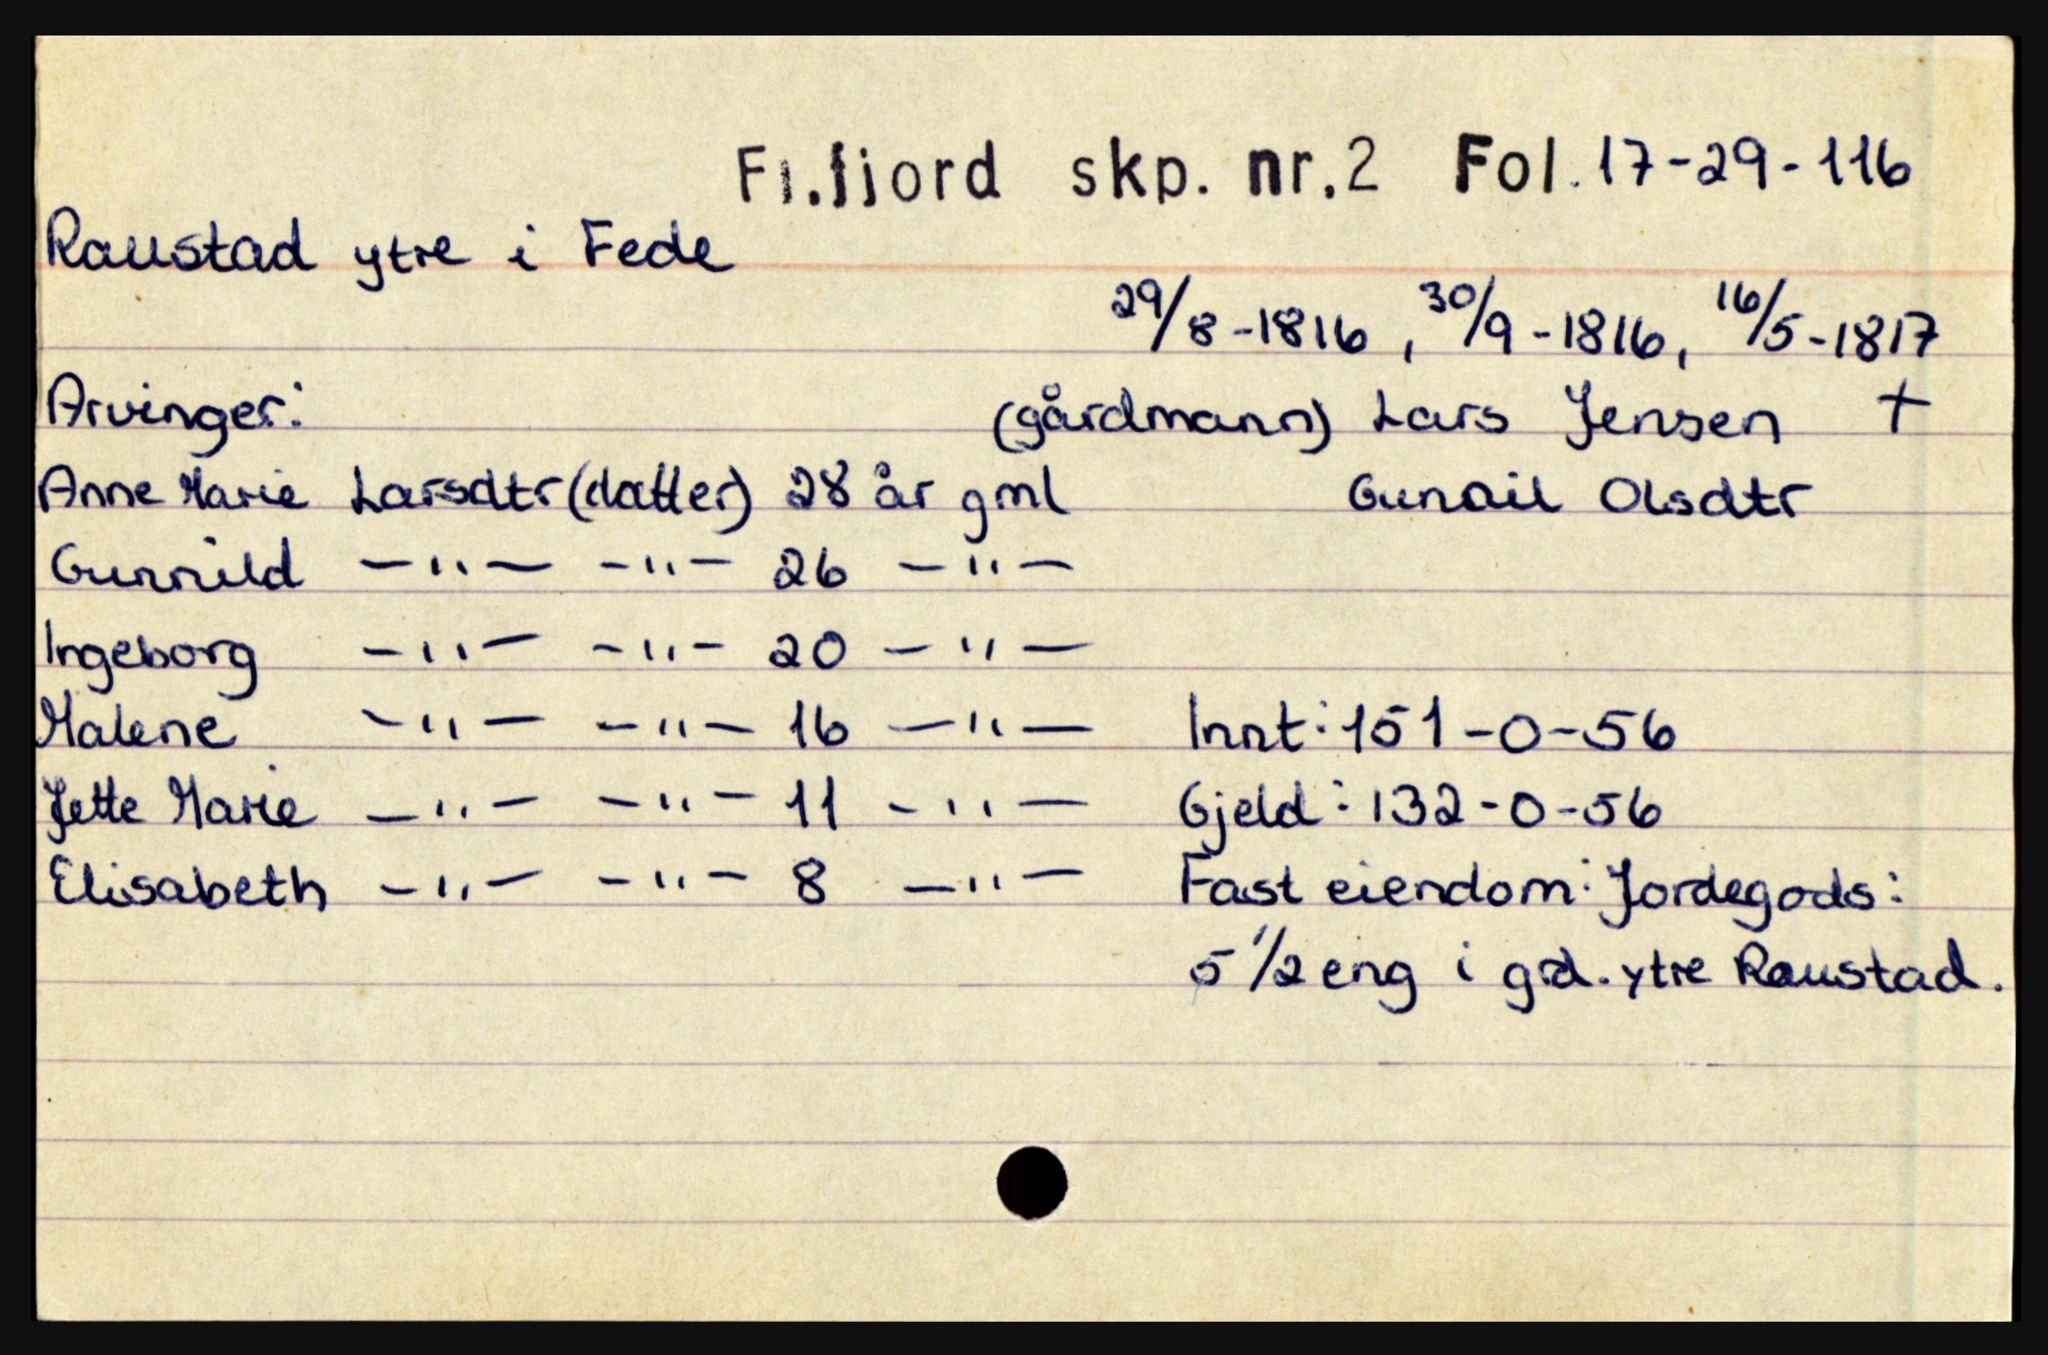 Fl.fjord skp. nr.2 Fol.17-29-116
Raustad ytre i Fede
29/8-1816, 30/9-1816, 16/5-1817
Arvinger: (gårdmann) Lars Jensen +
Anne Marie Larsdtr (datter) 28 år gml Gunail Olsdtr
Gunnild -"- -"- 26 -"-
Ingeborg -"- -"- 20 -"-
Malene -"- -"- 16 -"- Innt: 151-0-56
Jette Marie -"- -"- 11 -"- Gjeld: 132-0-56
Elisabeth -"- -"- 8 -"- Fast eiendom: Jordegods:
5 1/2 eng i grd. ytre Raustad.